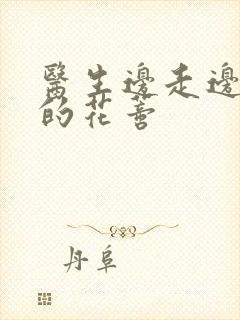 醫生邊走邊
的花蕾
丹阜